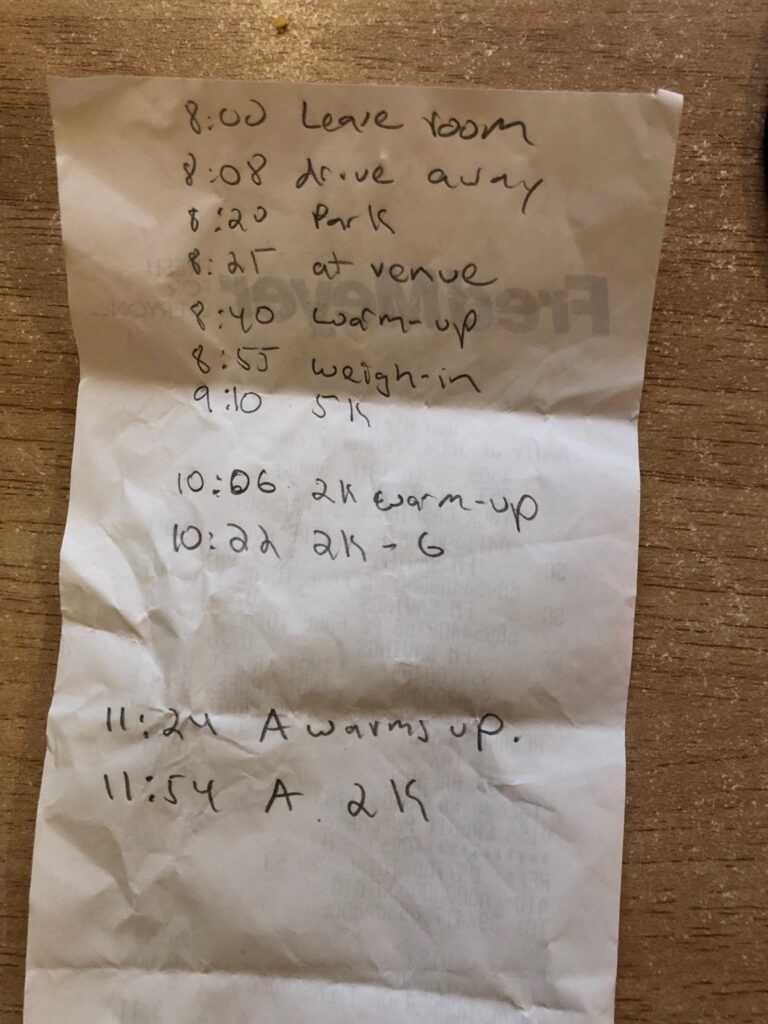 8:00 Leave room
8:08 drive away
8:20 Park
8:25 at venue
8:40 warm-up
8:55 weigh-in
9:10 5K
10:06 2K warm-up
10:22 2K - G
11:24 A warms up.
11:54 A 2K
Fred Meyer